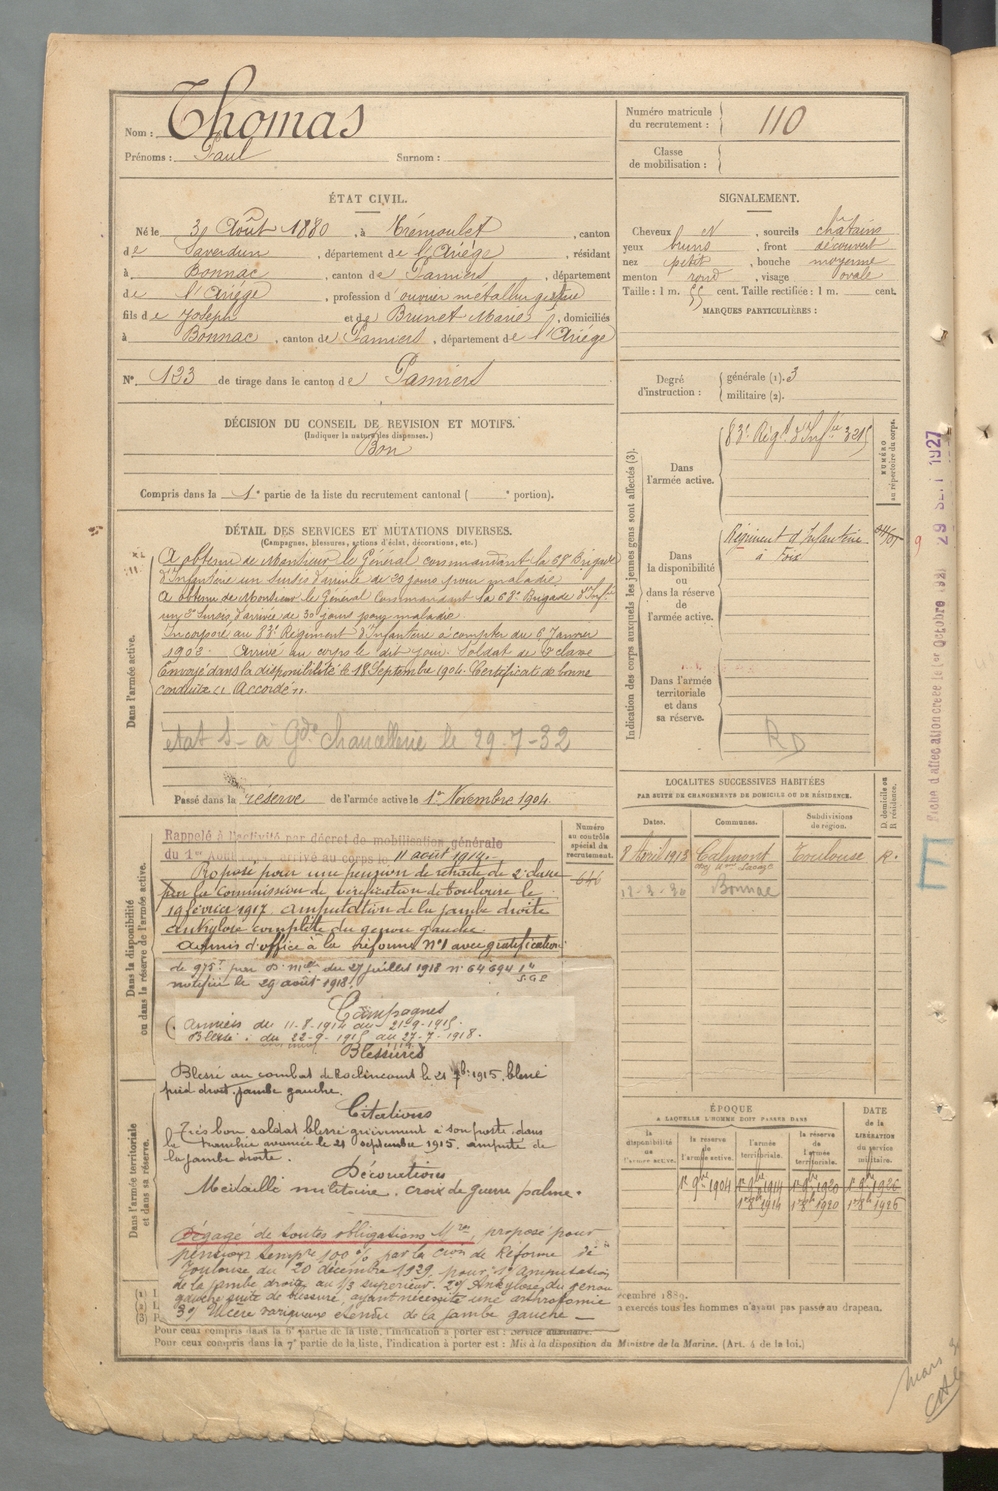 Nom : Thomas
Prénoms : Paul Surnom :
Numéro matricule du recrutement : 110
Classe de mobilisation :
ÉTAT CIVIL.
Né le 30 Août 1880, à Trémoulet, canton
de Saverdun, département de l'Ariége, résidant
à Bonnac, canton de Pamiers, département
de l'Ariége, profession d'ouvrier métallurgiste
fils de Joseph et de Brunet Marie, domiciliés
à Bonnac, canton de Pamiers, département de l'Ariége
N° 123 de tirage dans le canton de Pamiers
SIGNALEMENT.
Cheveux N, sourcils châtains
yeux bruns, front découvert
nez petit, bouche moyenne
menton rond, visage ovale
Taille : 1 m. 55 cent. Taille rectifiée : 1 m. cent.
MARQUES PARTICULIÈRES :
Degré d'instruction : générale (1). 3
militaire (2).
DÉCISION DU CONSEIL DE REVISION ET MOTIFS.
(Indiquer la nature des dispenses.)
Bon
Compris dans la 1e partie de la liste du recrutement cantonal ( e portion).
DÉTAIL DES SERVICES ET MUTATIONS DIVERSES.
(Campagnes, blessures, actions d'éclat, décorations, etc.)
Dans l'armée active.
A obtenu de Monsieur le Général commandant la 68e Brigade
d'Infanterie un sursis d'arrivée de 30 jours pour maladie
A obtenu de Monsieur le Général Commandant la 68e Brigade d'Infie
un 2e Sursis d'arrivée de 30 jours pour maladie
Incorporé au 83e Régiment d'Infanterie à compter du 6 Janvier
1903. Arrivé au corps le dit jour. Soldat de 2e classe
Envoyé dans la disponibilité le 18 Septembre 1904. Certificat de bonne
conduite « Accordé ».
état S - à Gde chancellerie le 29-7-32
Passé dans la réserve de l'armée active le 1er Novembre 1904.
Indication des corps auxquels les jeunes gens sont affectés (3).
Dans l'armée active.
83e Régt d'Infie 3215
NUMÉRO au répertoire du corps.
Dans la disponibilité ou dans la réserve de l'armée active.
Régiment d'Infanterie
à Foix
Dans l'armée territoriale et dans sa réserve.
RD
Fiche d'affectation créée le 1er Octobre 1921
29 SEPT 1927
9
E
Dans la disponibilité ou dans la réserve de l'armée active.
Numéro au contrôle spécial du recrutement.
646
Rappelé à l'activité par décret de mobilisation générale
du 1er Août 1914, arrivé au corps le 11 août 1914.
Proposé pour une pension de retraite de 2e classe
par la Commission de vérification de Toulouse le
19 février 1917. amputation de la jambe droite
ankylose complète du genou gauche
admis d'office à la réforme N°1 avec gratification
de 975f par D. Mlle du 27 juillet 1918 n° 64694
notifié le 29 août 1918.
Campagnes
Armées du 11-8-1914 au 21-9-1915.
Blessé du 22-9-1915 au 27-7-1918.
Blessures
Blessé au combat de Roclincourt le 21 7bre 1915, blessé
pied droit, jambe gauche.
Dans l'armée territoriale et dans sa réserve.
Citations
Très bon soldat blessé grièvement à son poste, dans
la tranchée avancée le 21 septembre 1915. amputé de
la jambe droite.
Décorations
Médaille militaire. croix de guerre palme.
Dégagé de toutes obligations Mres, proposé pour
pension tempre 100% par la Cion de Réforme de
Toulouse du 20 décembre 1929, pour : 1° Amputation
de la jambe droite au 1/3 supérieur. 2°) Ankylose du genou
gauche suite de blessure, ayant nécessité une arthrotomie
3°) Ulcère variqueux étendu de la jambe gauche —
LOCALITES SUCCESSIVES HABITÉES
PAR SUITE DE CHANGEMENTS DE DOMICILE OU DE RÉSIDENCE.
Dates. Communes. Subdivisions de région. D domicile ou R résidence.
8 Avril 1913 Calmont Toulouse R.
12-3-30 Bonnac
ÉPOQUE
A LAQUELLE L'HOMME DOIT PASSER DANS
la disponibilité de l'armée active.
la réserve de l'armée active.
l'armée territoriale.
la réserve de l'armée territoriale.
DATE de la LIBÉRATION du service militaire.
1er 9bre 1904 1er 9bre 1914 1er 9bre 1920 1er 9bre 1926
1er 8bre 1914 1er 8bre 1920 1er 8bre 1926
décembre 1889.
exercés tous les hommes n'ayant pas passé au drapeau.
Pour ceux compris dans la 6e partie de la liste, l'indication à porter est : Service auxiliaire.
Pour ceux compris dans la 7e partie de la liste, l'indication à porter est : Mis à la disposition du Ministre de la Marine. (Art. 4 de la loi.)
mars